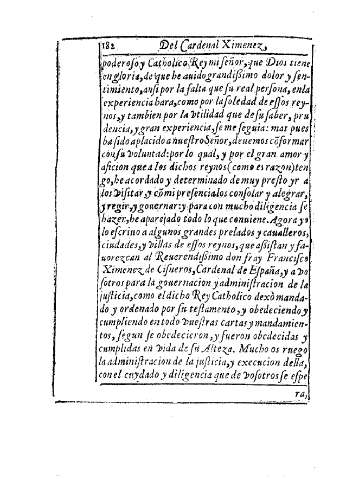 182 Del Cardenal Ximenez,
poderoso y Catholico Rey mi señor, que Dios tiene
en gloria, de que he auido grandissimo dolor y sen-
timiento, ansi por la falta que su real persona, en la
experiencia hara, como por la soledad de essos rey-
nos, y tambien por la vtilidad que de su saber, pru
dencia, y gran experiencia, se me seguia: mas pues
ha sido aplacido a nuestro Señor, deuemos cōformar
con su voluntad: por lo qual, y por el gran amor y
aficion que a los dichos reynos (como es razon) ten-
go, he acordado y determinado de muy presto yr a
los visitar, y cō mi presencia los consolar y alegrar,
y regir, y gouernar: y para con mucho diligencia se
hazer, he aparejado todo lo que conuiene. Agora ya
lo escriuo a algunos grandes prelados y caualleros,
ciudades, y villas de essos reynos, que assistan y fa-
uorezcan al Reuerendissimo don fray Francisco
Ximenez de Cisneros, Cardenal de España, y a vo
sotros para la gouernacion y administracion de la
justicia, como el dicho Rey Catholico dexò manda-
do y ordenado por su testamento, y obedeciendo y
cumpliendo en todo vuestras cartas y mandamien-
tos, segun se obedecieron, y fueron obedecidas y
cumplidas en vida de su Alteza. Mucho os ruego
la administracion de la justicia, y execucion della,
con el cuydado y diligencia que de vosotros se espe
ra,